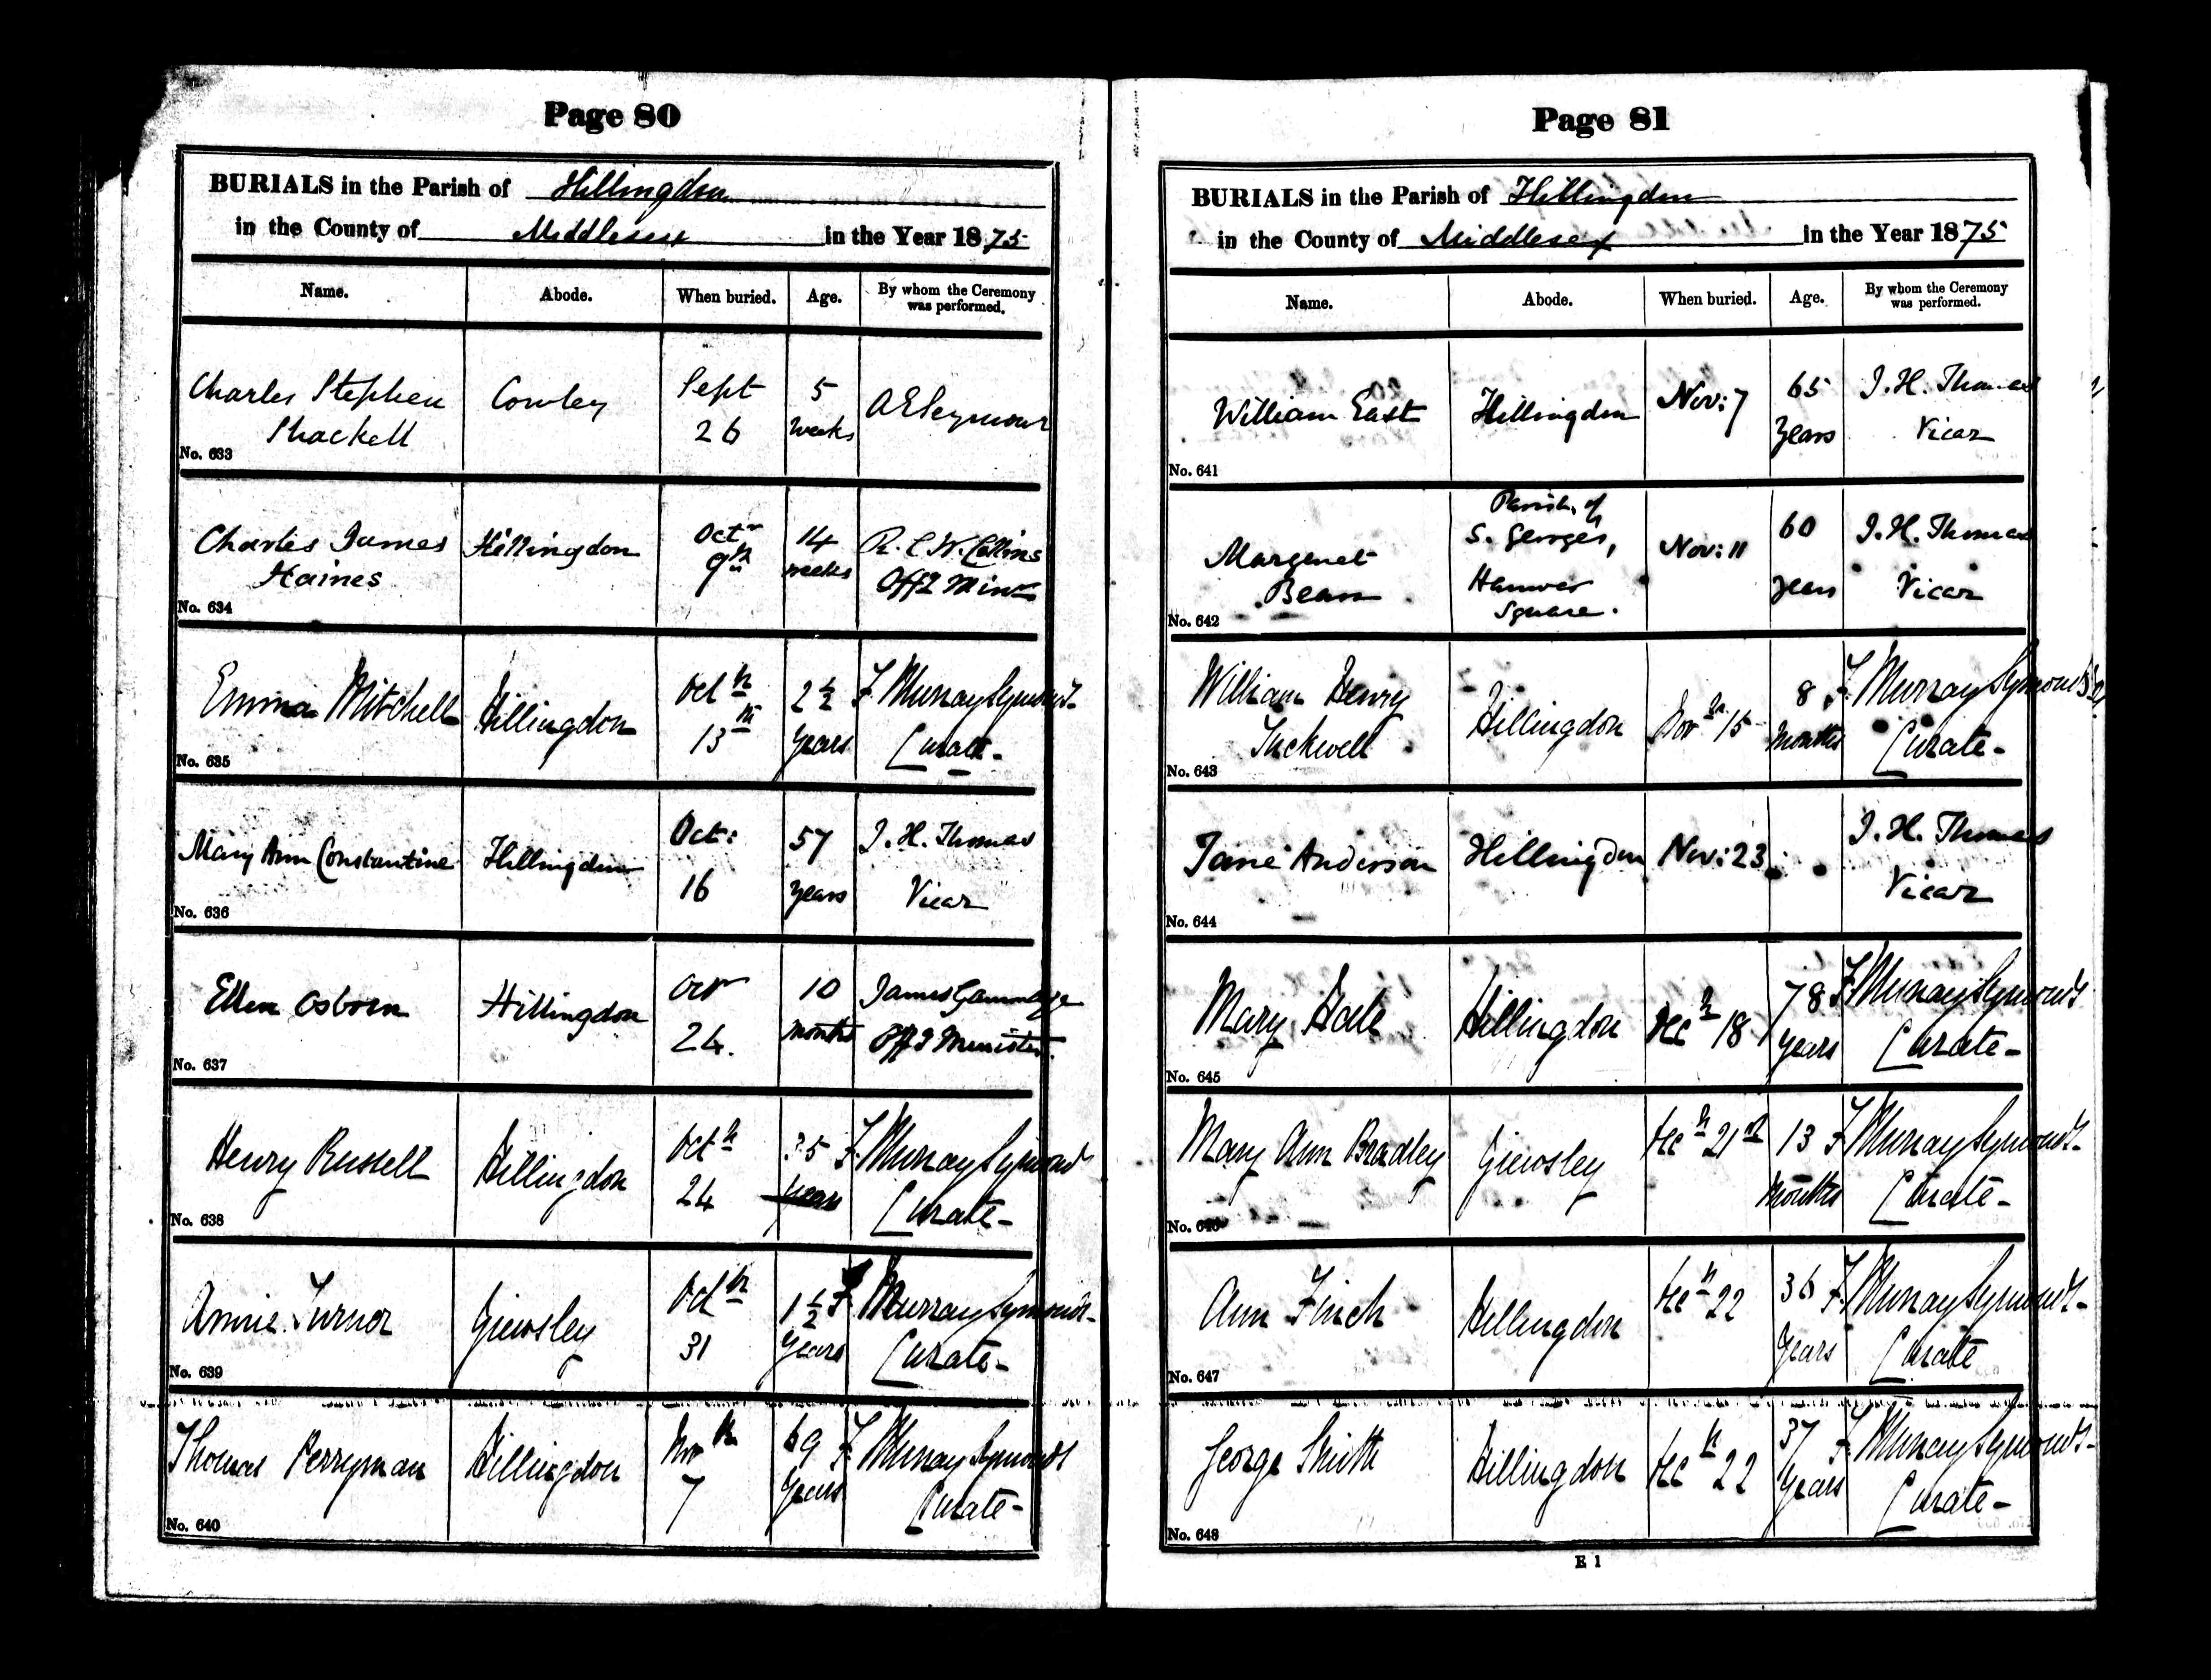 Page 80
BURIALS in the Parish of Hillingdon
in the County of Middlesex in the Year 1875
Name. Abode. When buried. Age. By whom the Ceremony was performed.
Charles Stephen Shackell Cowley Sept 26 5 weeks A E Seymour
No. 633
Charles James Haines Hillingdon Octr 9th 14 weeks R. C. W. Collins Offg Minr
No. 634
Emma Mitchell Hillingdon Octr 13th 2½ years F. Murray Symonds Curate-
No. 635
Mary Ann Constantine Hillingdon Oct: 16 57 years J. H. Thomas Vicar
No. 636
Ellen Osborn Hillingdon Octr 24. 10 months James Gammage Offg Minister.
No. 637
Henry Russell Hillingdon Octr 24 35 years F. Murray Symonds Curate-
No. 638
Annie Turner Yiewsley Octr 31 1½ years F. Murray Symonds- Curate-
No. 639
Thomas Perryman Hillingdon Novr 7 69 years F. Murray Symonds Curate-
No. 640
Page 81
BURIALS in the Parish of Hillingdon
in the County of Middlesex in the Year 1875
Name. Abode. When buried. Age. By whom the Ceremony was performed.
William East Hillingdon Nov: 7 65 years J. H. Thomas Vicar
No. 641
Margaret Bean Parish of S. Georges, Hanover Square. Nov: 11 60 years J. H. Thomas Vicar
No. 642
William Henry Tuckwell Hillingdon Novr 15 8 months F. Murray Symonds Curate-
No. 643
Jane Anderson Hillingdon Nov: 23 J. H. Thomas Vicar
No. 644
Mary Hale Hillingdon Decr 18 78 years F. Murray Symonds Curate-
No. 645
Mary Ann Bradley Yiewsley Decr 21st 13 months F. Murray Symonds- Curate-
No. 646
Ann Finch Hillingdon Decr 22 36 years F. Murray Symonds- Curate
No. 647
George Smith Hillingdon Decr 22 37 years F. Murray Symonds- Curate-
No. 648
E 1